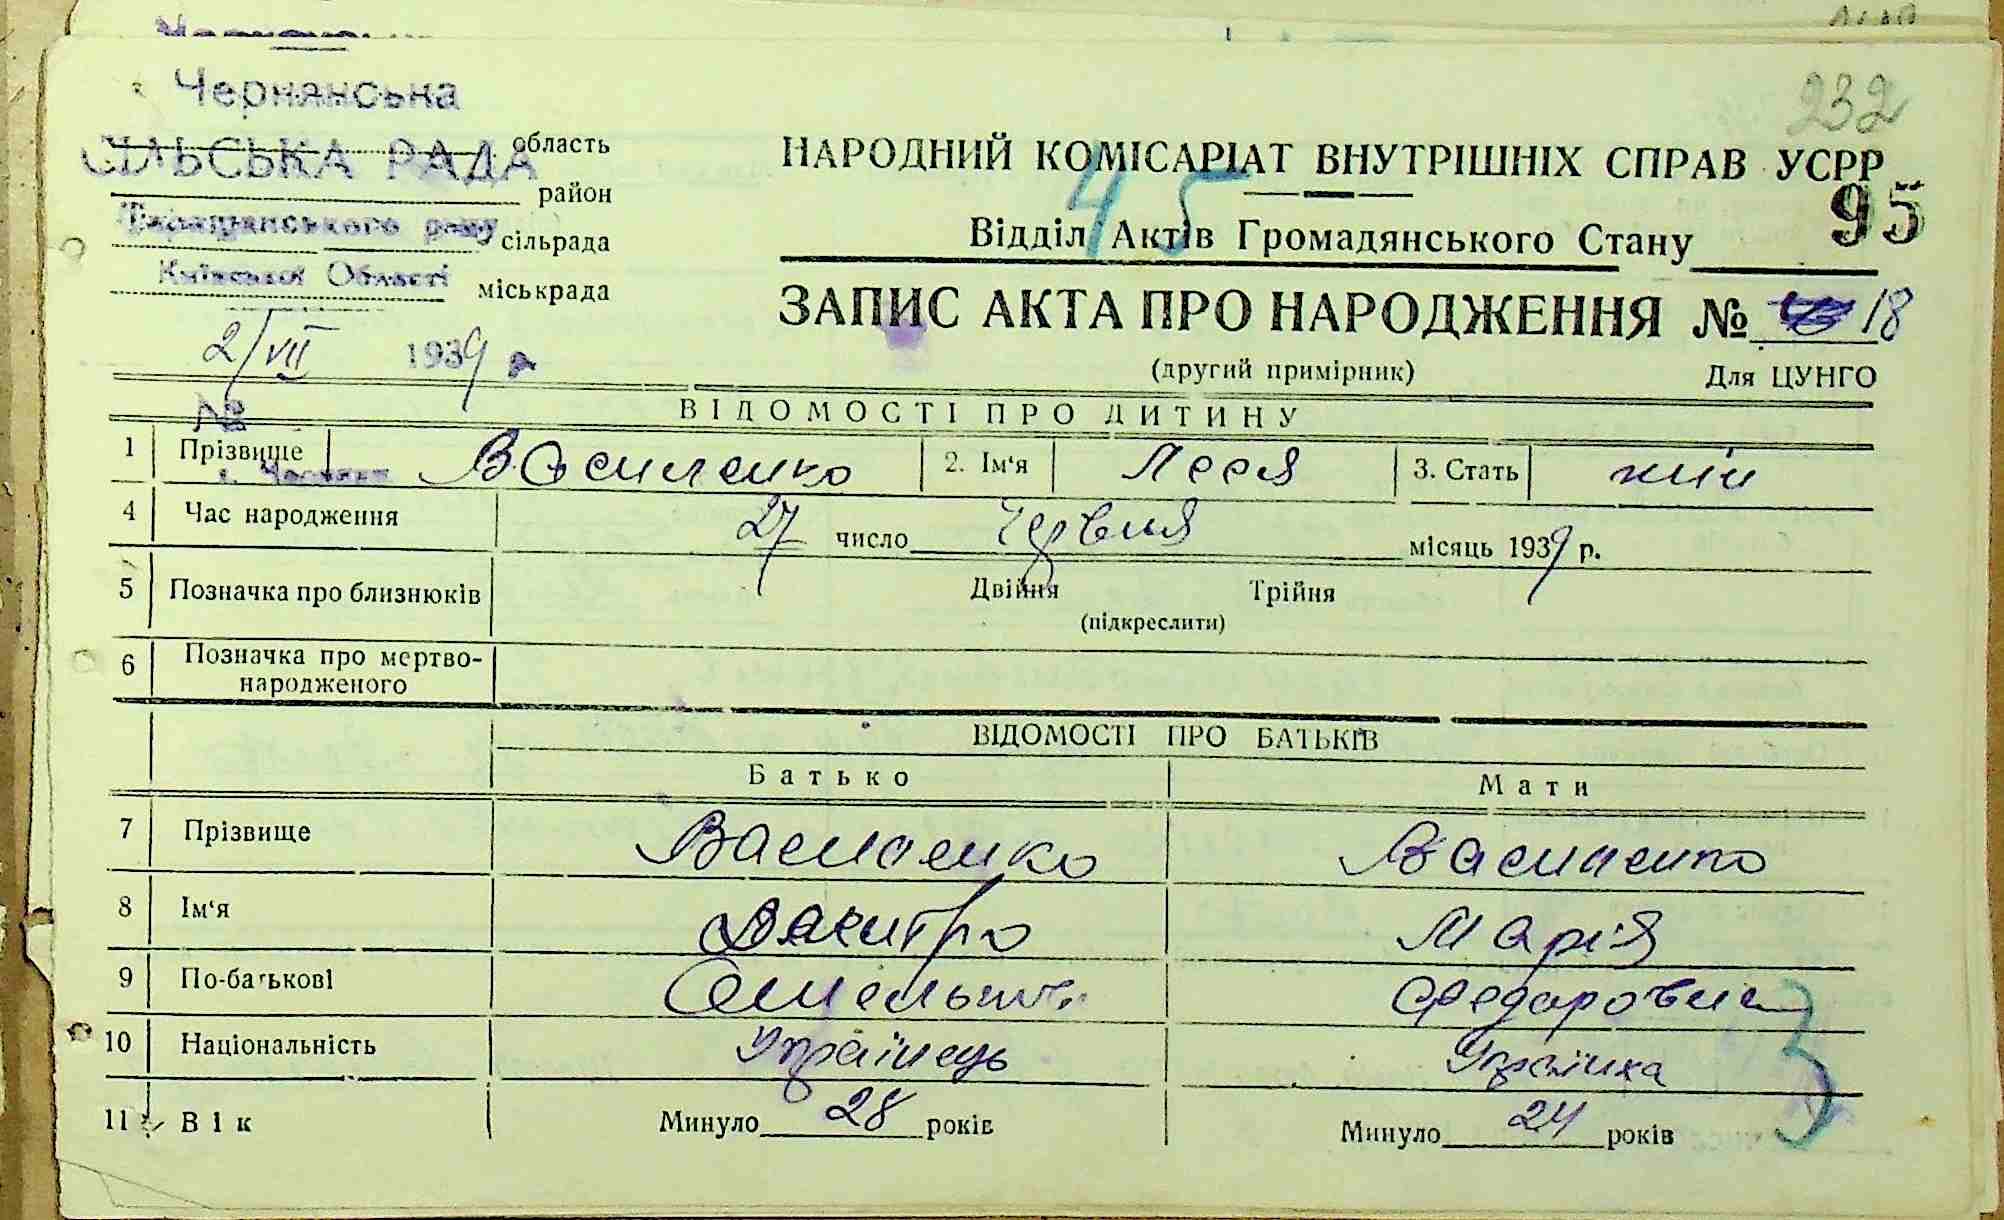 232
Чернянська
СІЛЬСЬКА РАДА область
район
Таращанського рону сільрада
Київської Області міськрада
2/VII 1939 р.
№
НАРОДНИЙ КОМІСАРІАТ ВНУТРІШНІХ СПРАВ УСРР
45
95
Відділ Актів Громадянського Стану
ЗАПИС АКТА ПРО НАРОДЖЕННЯ № 18
(другий примірник) Для ЦУНГО
ВІДОМОСТІ ПРО ДИТИНУ
1 Прізвище Василенко 2. Ім'я Леся 3. Стать жін
4 Час народження 27 число Червня місяць 1939 р.
5 Позначка про близнюків Двійня Трійня
(підкреслити)
6 Позначка про мертво-
народженого
ВІДОМОСТІ ПРО БАТЬКІВ
Батько Мати
7 Прізвище Василенко Василенко
8 Ім'я Дмитро Марія
9 По-батькові Федоровна
10 Національність Українець Українка
11 Вік Минуло 28 років Минуло 24 років
3